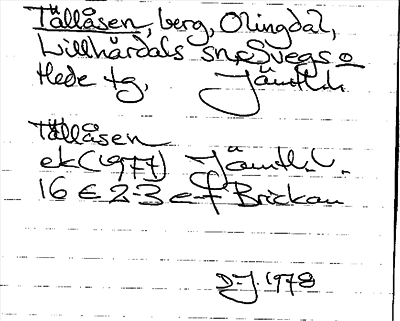 Tällåsen, berg, Olingdal,
Lillhärdals sn, Svegs o
Hede tg, Jämtl.l.
Tällåsen
ek (1977) Jämtl. l.
16 E 2-3 e-f Brickan
D-J. 1978